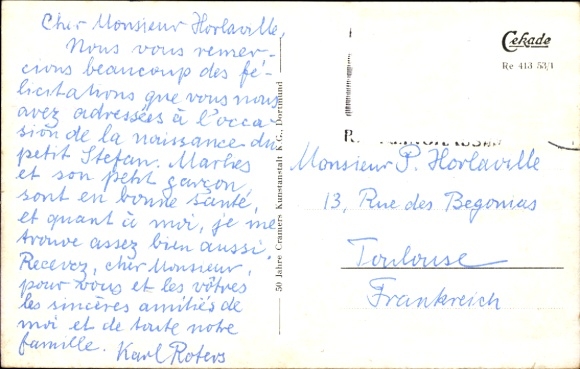 Cher Monsieur Horlaville,
Nous vous remer-
cions beaucoup des fé-
licitations que vous nous
avez adressées à l'occa-
sion de la naissance du
petit Stefan. Marlies
et son petit garçon
sont en bonne santé,
et quant à moi, je me
trouve assez bien aussi.
Recevez, cher Monsieur,
pour vous et les vôtres
les sincères amitiés de
moi et de toute notre
famille. Karl Roters
50 Jahre Cramers Kunstanstalt K.G., Dortmund
Cekade
Re 413 53/1
Monsieur P. Horlaville
13, Rue des Begonias
Toulouse
Frankreich